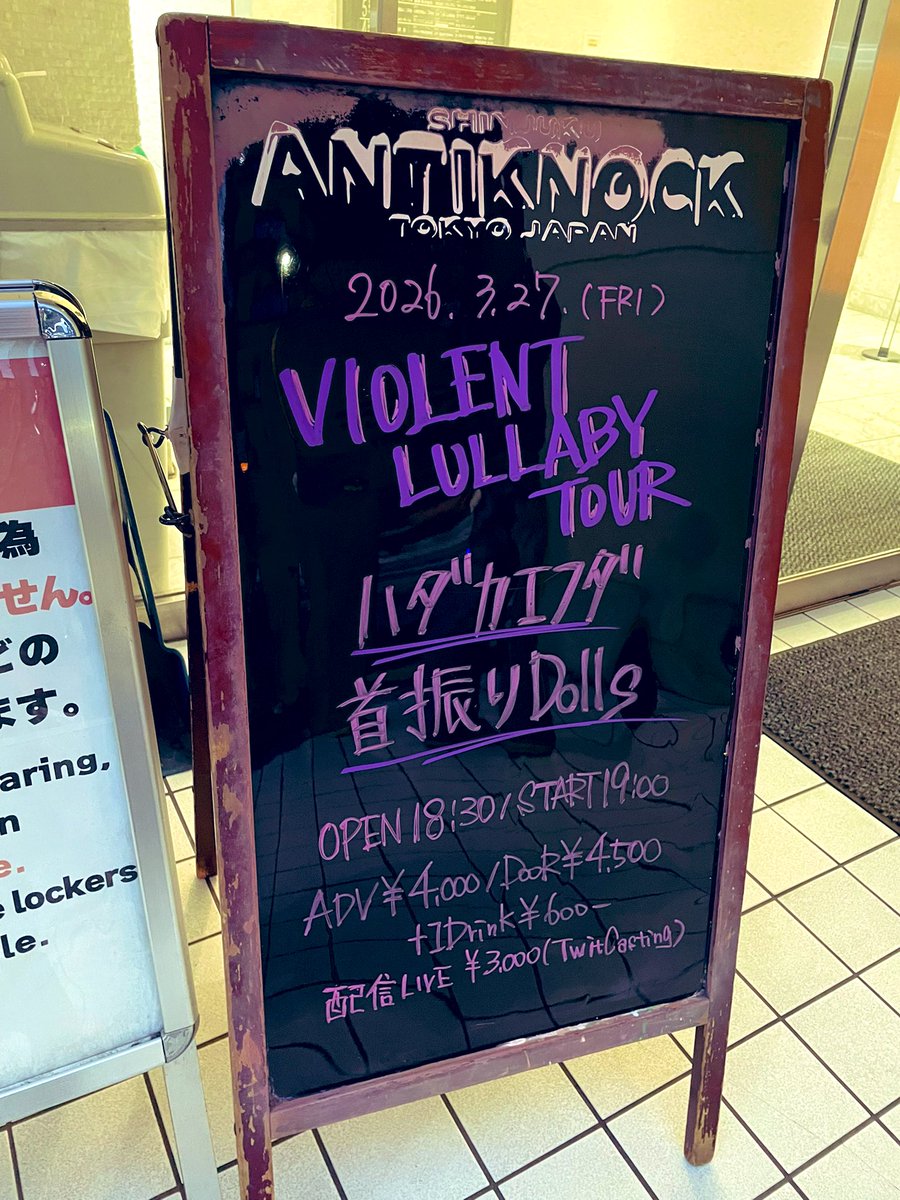 SHINJUKU
ANTIKNOCK
TOKYO JAPAN
2026. 3.27. (FRI)
VIOLENT
LULLABY
TOUR
ハダカエフダ
首振りDolls
OPEN 18:30/START19:00
ADV ¥4,000/DooR ¥4,500
+1Drink ¥600-
配信LIVE ¥3,000 (TwitCasting)
為
せん。
どの
ます。
aring,
n
e.
e lockers
le.